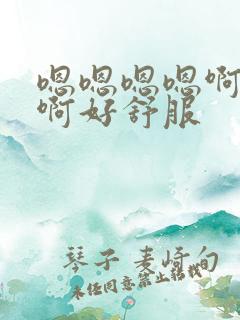 嗯嗯嗯嗯啊
啊好舒服
琴子 麦崎句
未任同意禁止转载